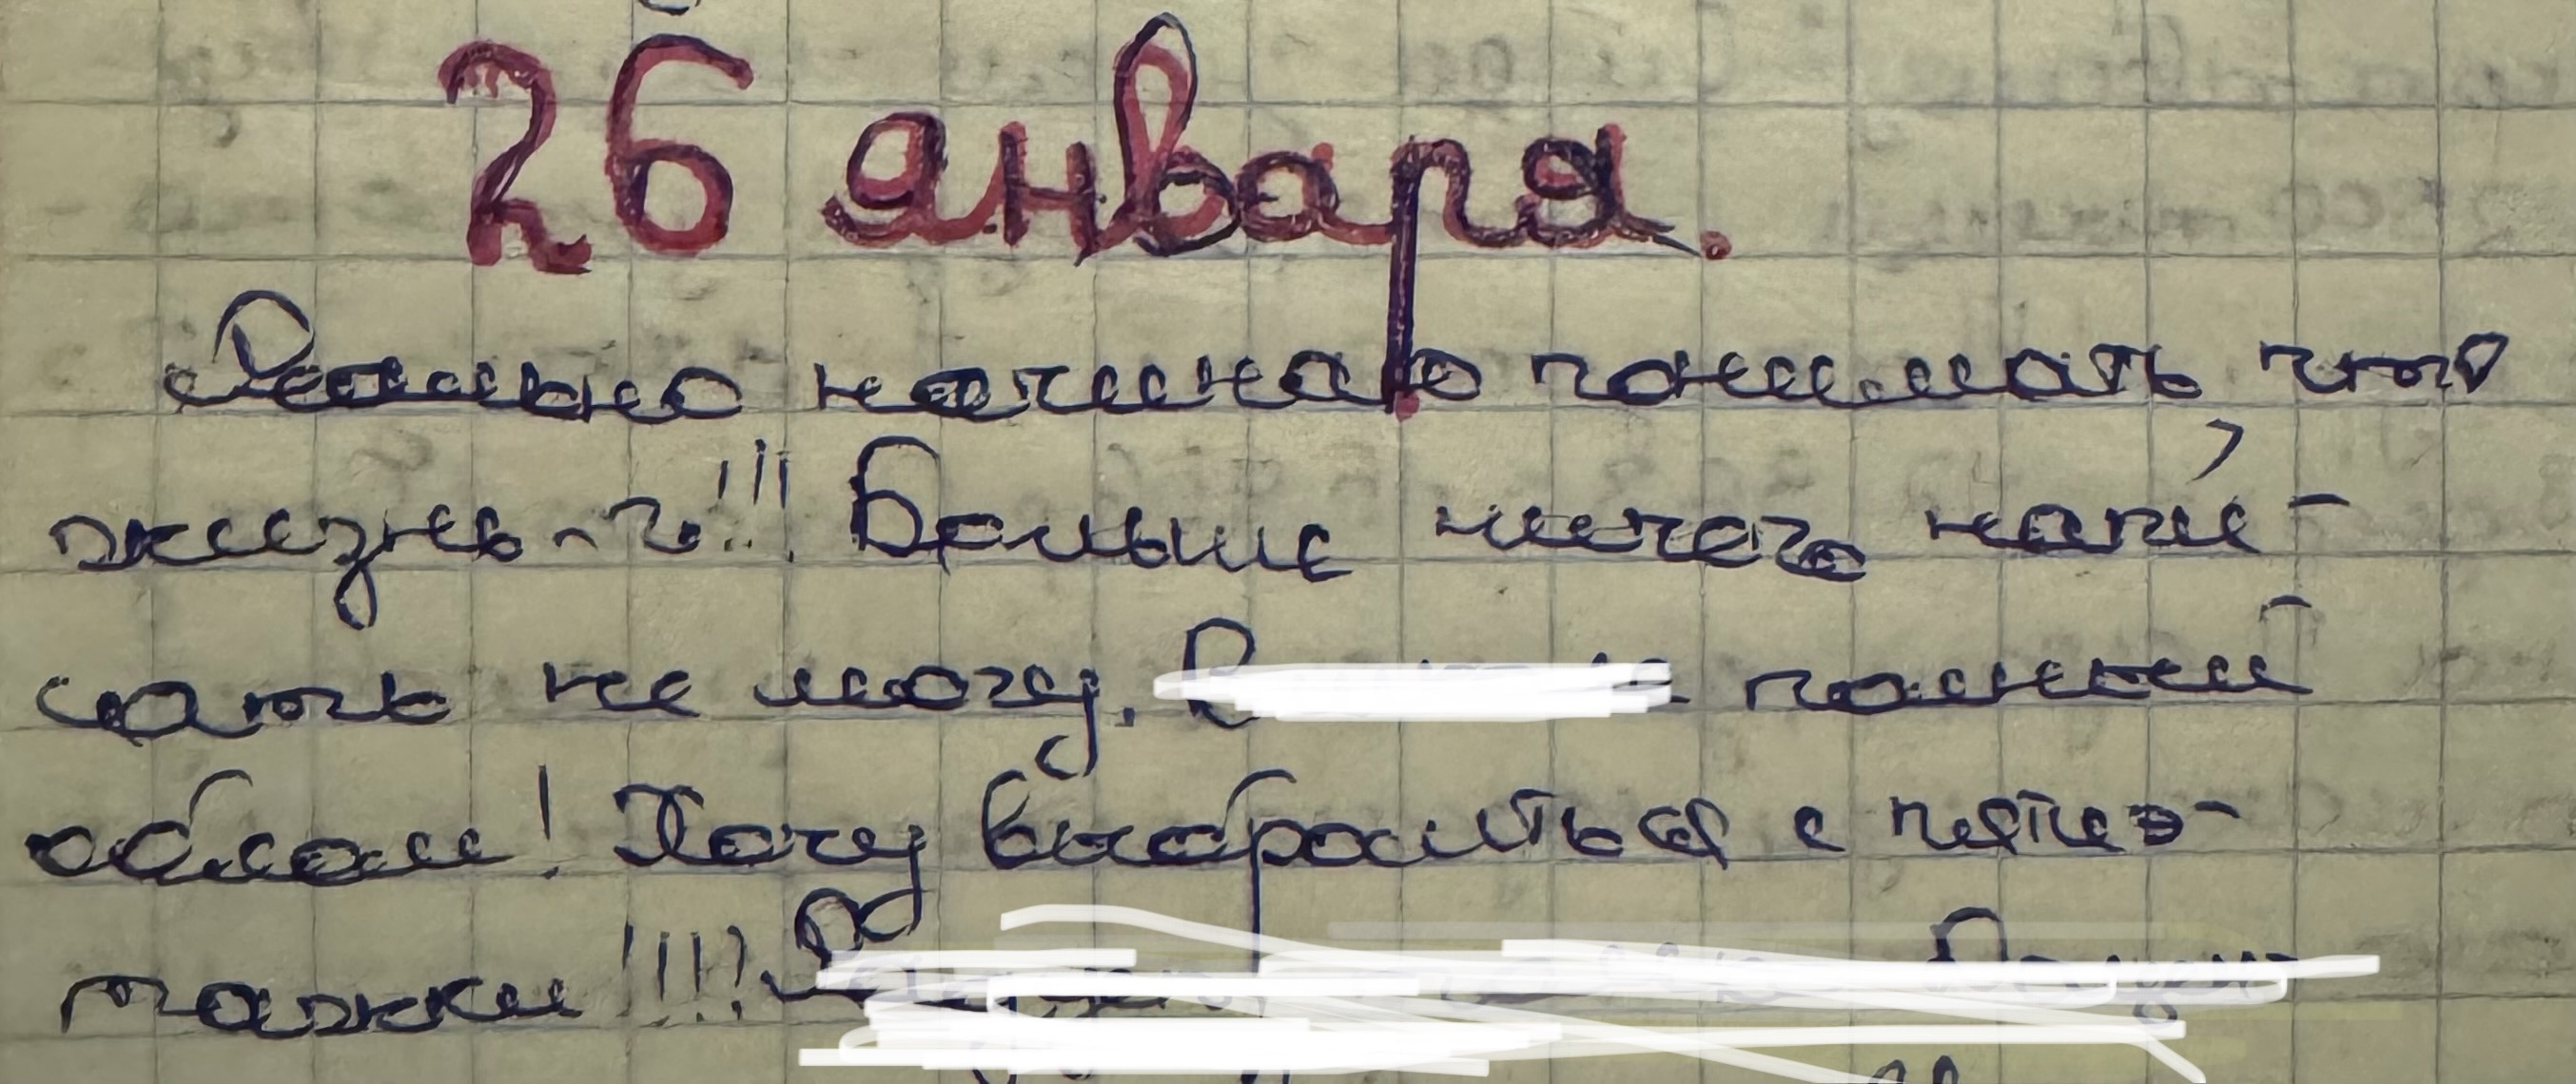 26 января.
Реально начинаю понимать что
жизнь-г!!! Больше ничего напи-
сать не могу. В полный
облом! Хочу выброситься с пятиэ-
тажки!!!!